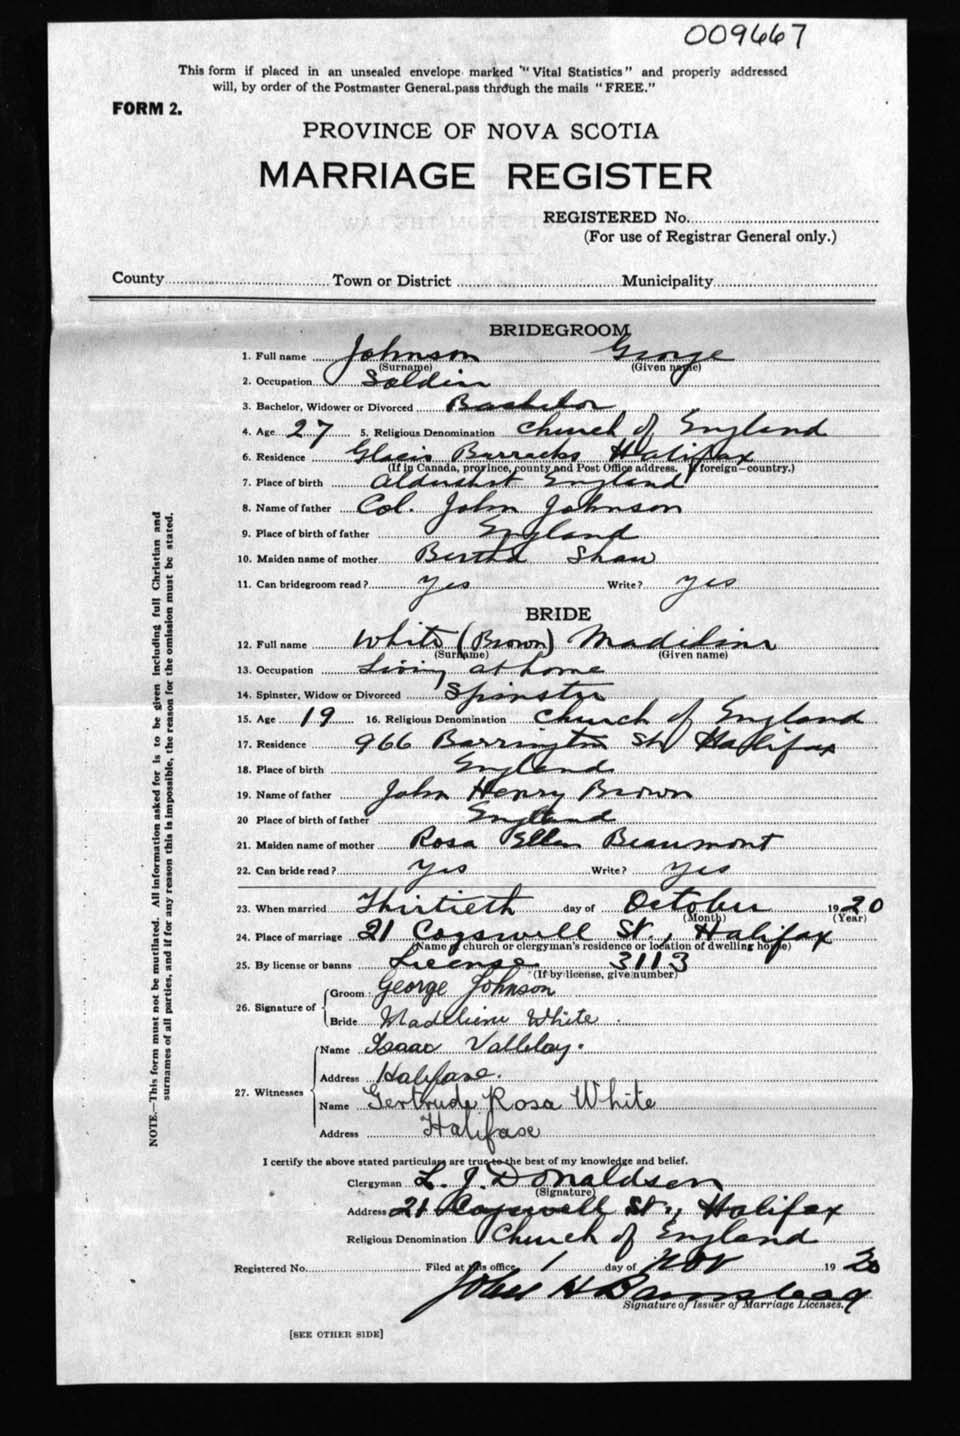 009667
This form if placed in an unsealed envelope marked "Vital Statistics" and properly addressed
will, by order of the Postmaster General, pass through the mails "FREE."
FORM 2.
PROVINCE OF NOVA SCOTIA
MARRIAGE REGISTER
REGISTERED No.
(For use of Registrar General only.)
County Town or District Municipality
BRIDEGROOM
1. Full name Johnson George
(Surname) (Given name)
2. Occupation Soldier
3. Bachelor, Widower or Divorced Bachelor
4. Age 27 5. Religious Denomination Church of England
6. Residence Glacis Barracks Halifax
(If in Canada, province, county and Post Office address. If foreign—country.)
7. Place of birth Aldershot England
8. Name of father Col. John Johnson
9. Place of birth of father England
10. Maiden name of mother Bertha Shaw
11. Can bridegroom read? Yes Write? Yes
BRIDE
12. Full name White (Brown) Madeline
(Surname) (Given name)
13. Occupation Living at home
14. Spinster, Widow or Divorced Spinster
15. Age 19 16. Religious Denomination Church of England
17. Residence 966 Barrington St. Halifax
18. Place of birth England
19. Name of father John Henry Brown
20 Place of birth of father England
21. Maiden name of mother Rosa Ellen Beaumont
22. Can bride read? Yes Write? Yes
23. When married Thirtieth day of October 1920
(Month) (Year)
24. Place of marriage 21 Cogswell St., Halifax
(Name of church or clergyman's residence or location of dwelling house)
25. By license or banns License 3113
(If by license, give number)
26. Signature of Groom George Johnson
Bride Madeline White
27. Witnesses Name Isaac
Address Halifax.
Name Gertrude Rosa White
Address Halifax
I certify the above stated particulars are true to the best of my knowledge and belief.
Clergyman L. J. Donaldson
(Signature)
Address 21 Cogswell St., Halifax
Religious Denomination Church of England
Registered No. Filed at this office 1 day of Nov 1920
John H Barnstead
Signature of Issuer of Marriage Licenses.
[SEE OTHER SIDE]
NOTE.—This form must not be mutilated. All information asked for is to be given including full Christian and
surnames of all parties, and if for any reason this is impossible, the reason for the omission must be stated.